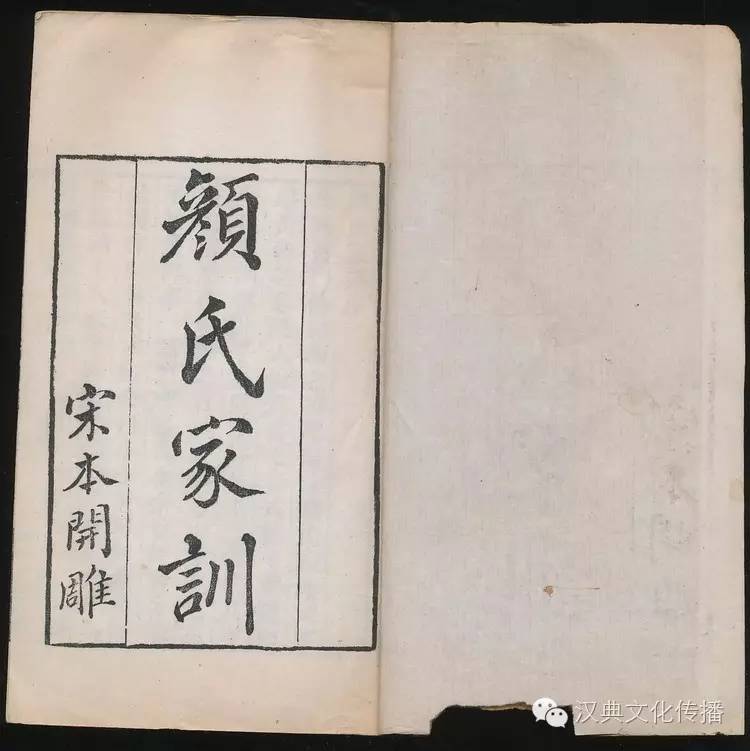 顔氏家訓
宋本開雕
汉典文化传播